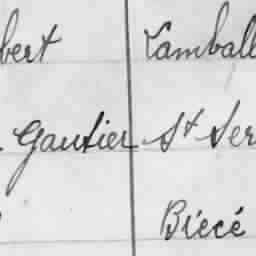 bert Lamball
Gautier St Ser
Biécé